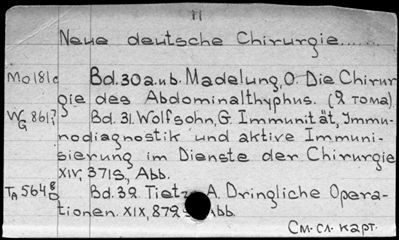 11
Neue deutsche Chirurgie......
Mo181c Bd.30a.u.b. Madelung, O. Die Chirur-
gie des Abdominalthyphus. (2 тома)
Bd. 31. Wolfsohn, G Immunität, Immu-
nodiagnostik und aktive Immuni-
sierung im Dienste der Chirurgie
XIV, 371 S., Abb.
Bd. 32. Tietz A. Dringliche Opera-
tionen. XIX, 879 Abb.
См. сл. карт.